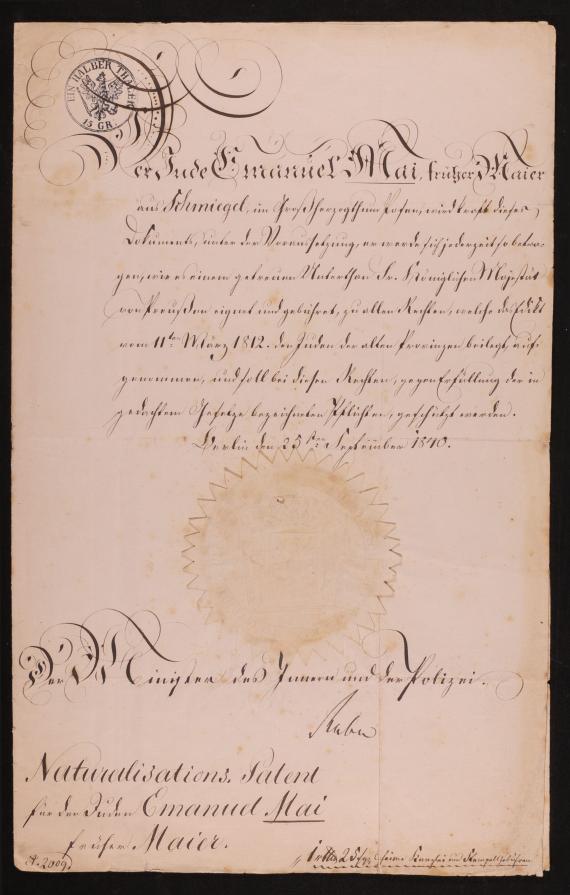 EIN HALBER THALER
15 GR.
Der Jude Emanuel Mai, früher Maier
aus Schmiegel, im Großherzogthum Posen, wird kraft dieses
Dokuments, unter der Voraussetzung, er werde sich jederzeit so betra-
gen, wie es einem getreuen Unterthan Sr. Königlichen Majestät
von Preußen eignet und gebühret, zu allen Rechten, welche das Edikt
vom 11ten März 1812. den Juden der alten Provinzen beilegt, auf-
genommen, und soll bei diesen Rechten, gegen Erfüllung der in
gedachtem Gesetze bezeichneten Pflichten, geschützt werden.
Berlin den 25ten September 1840.
Der Minister des Innern und der Polizei.
Naturalisations-Patent
für den Juden Emanuel Mai
früher Maier.
2009